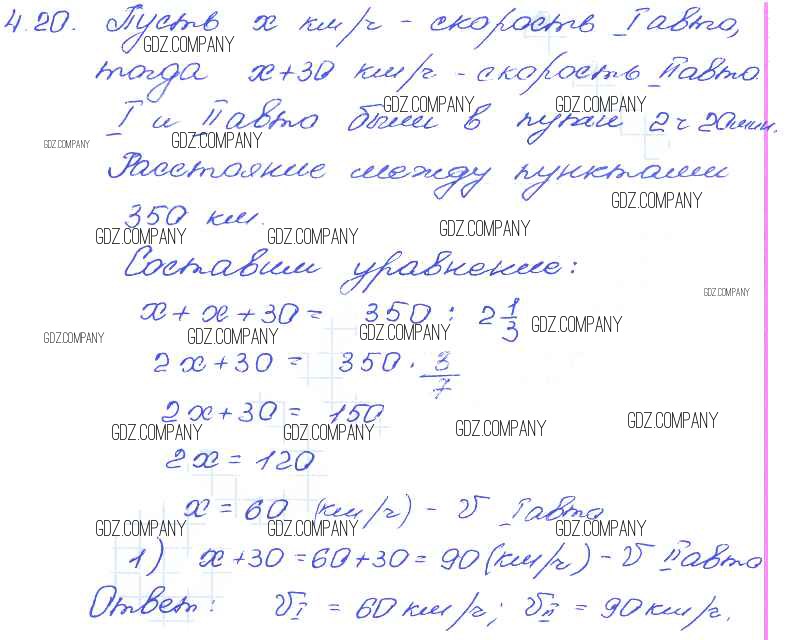 4.20. Пусть x км/ч - скорость I авто,
GDZ.COMPANY
тогда x+30 км/ч - скорость II авто
GDZ.COMPANY GDZ.COMPANY
I и II авто были в пути 2 ч 20 мин.
GDZ.COMPANY GDZ.COMPANY
Расстояние между пунктами
GDZ.COMPANY
350 км.
GDZ.COMPANY GDZ.COMPANY GDZ.COMPANY
Составим уравнение:
GDZ.COMPANY
x + x + 30 = 350 : 2 1/3
GDZ.COMPANY GDZ.COMPANY GDZ.COMPANY GDZ.COMPANY
2x + 30 = 350 · 3/7
2x + 30 = 150
GDZ.COMPANY GDZ.COMPANY GDZ.COMPANY GDZ.COMPANY
2x = 120
x = 60 (км/ч) - v I авто
GDZ.COMPANY GDZ.COMPANY GDZ.COMPANY
1) x+30 = 60+30 = 90 (км/ч) - v II авто
Ответ: v I = 60 км/ч; v II = 90 км/ч.